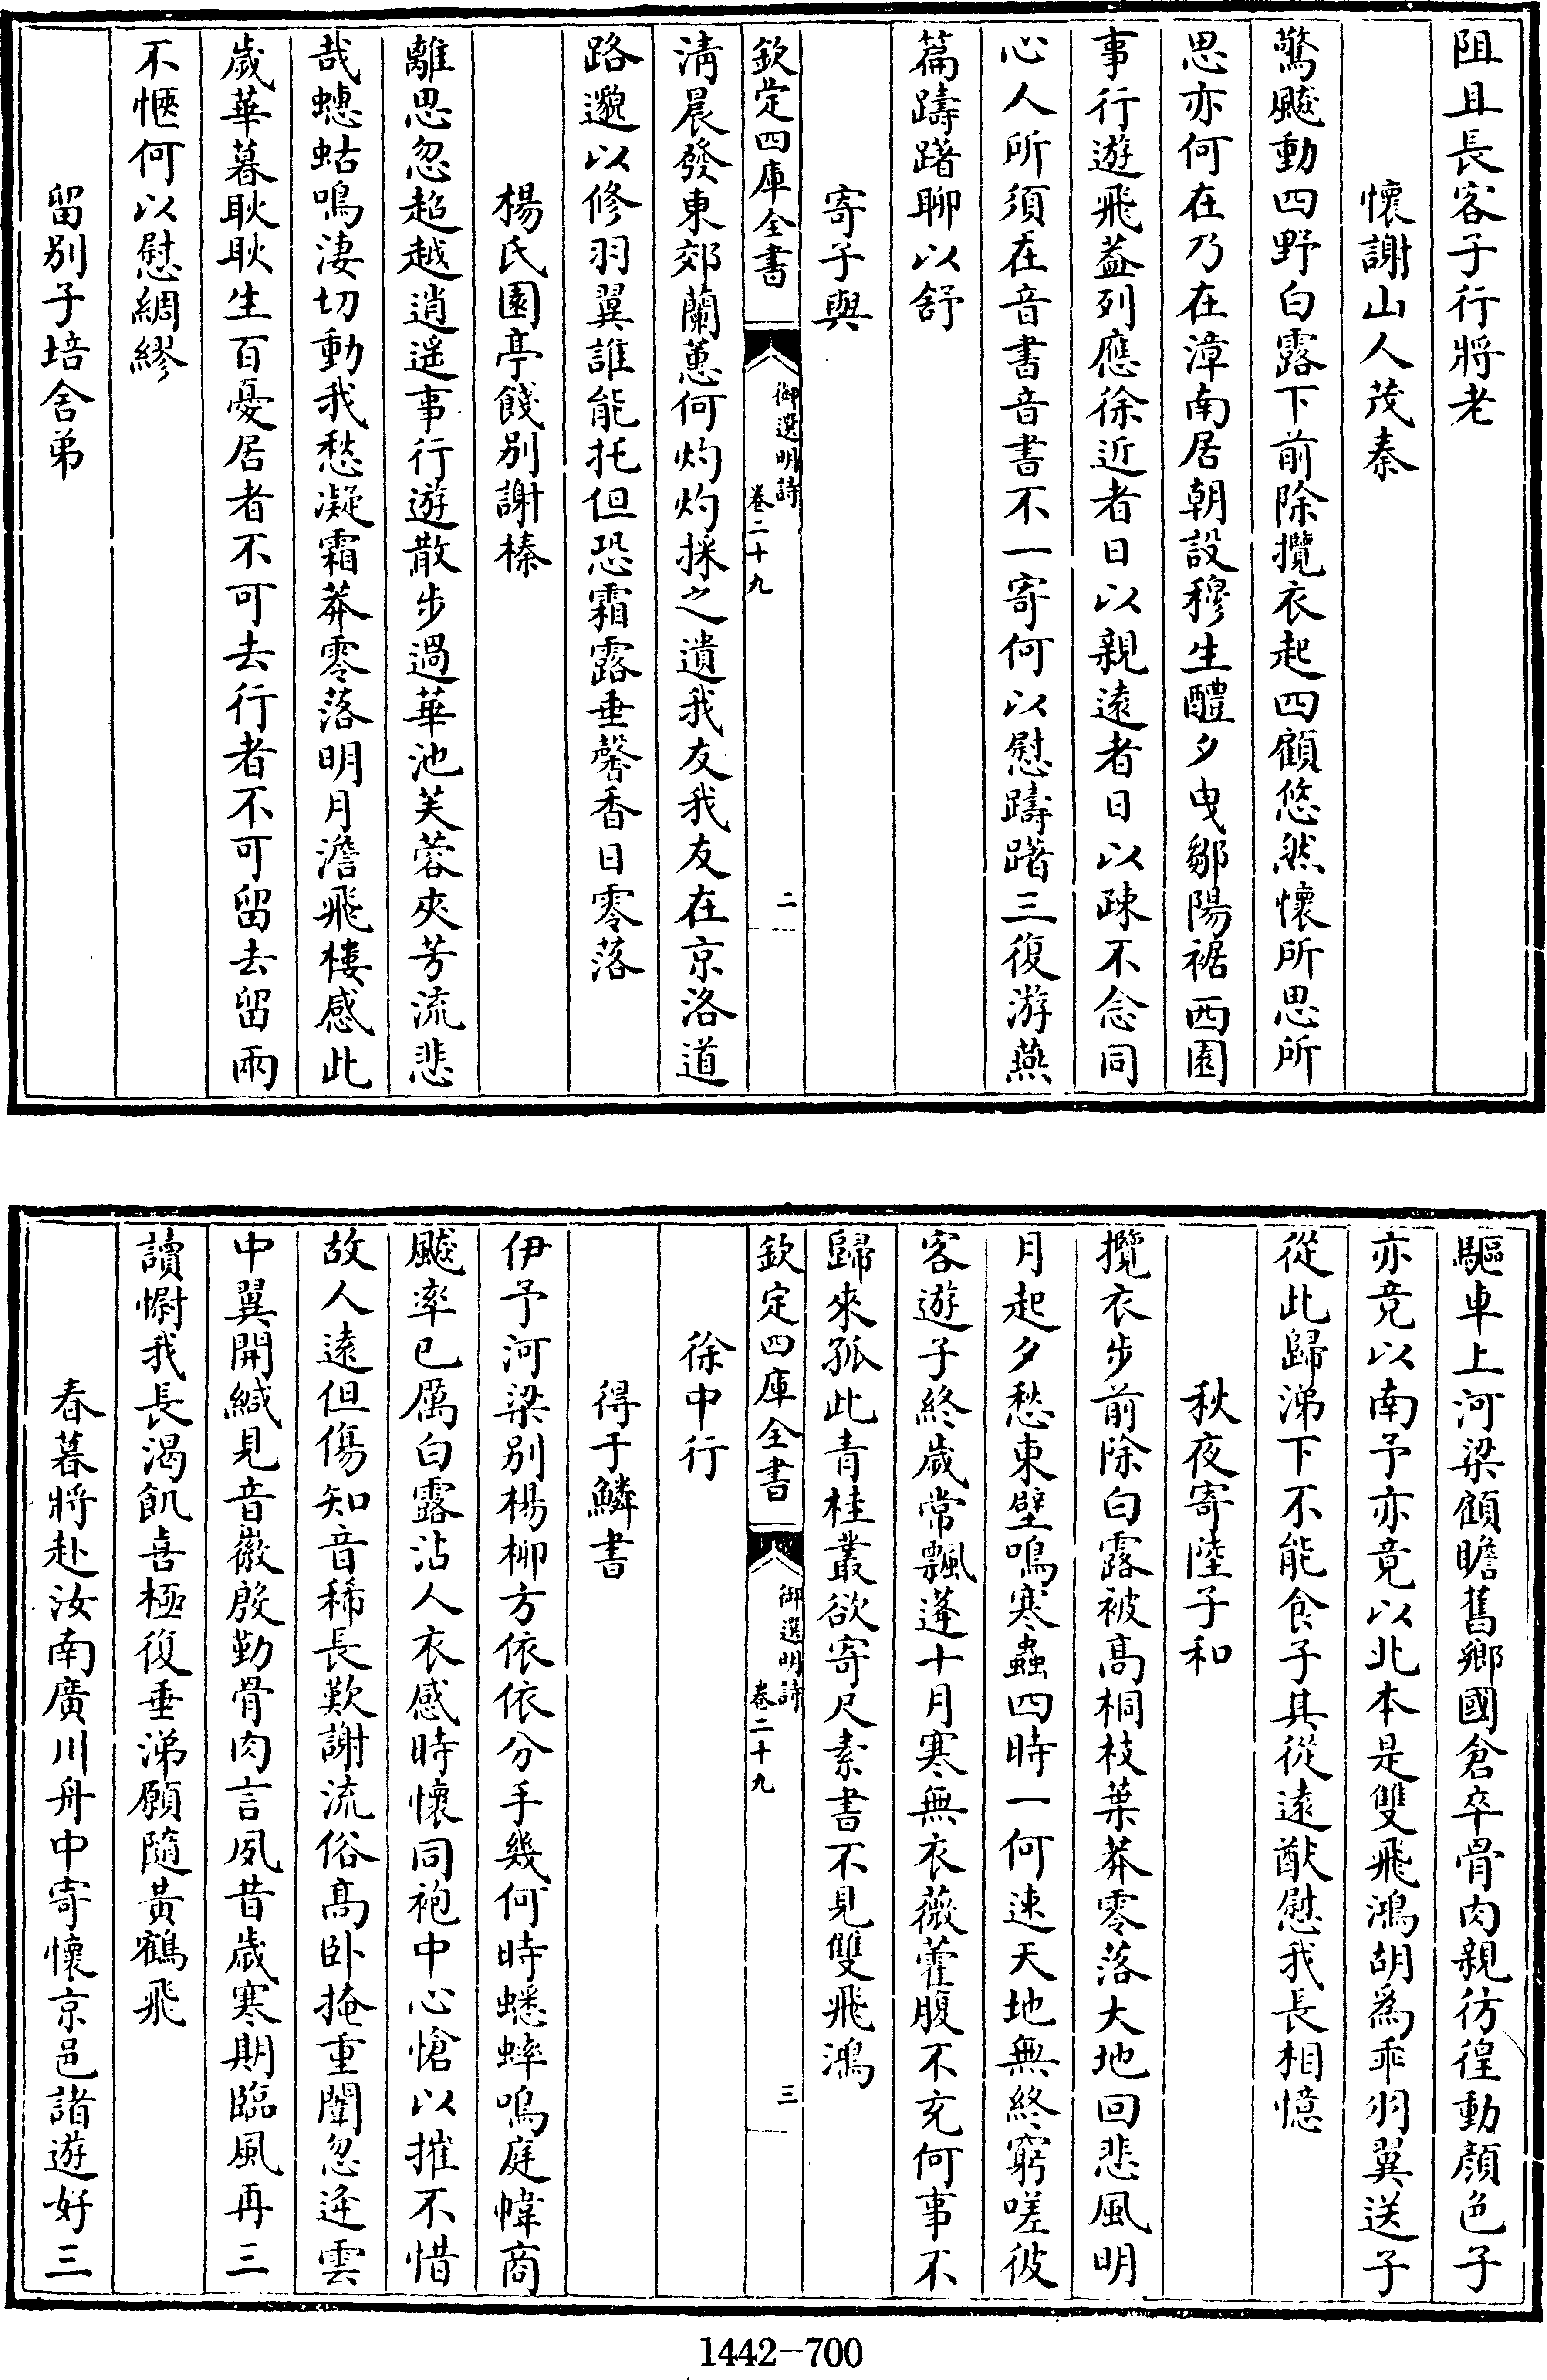 阻且長客子行將老
懷謝山人茂秦
驚飇動四野白露下前除攬衣起四顧悠然懷所思所
思亦何在乃在漳南居朝設穆生醴夕曳鄒陽裾西園
事行遊飛葢列應徐近者日以親遠者日以疎不念同
心人所須在音書音書不一寄何以慰躊躇三復游燕
篇躊躇聊以舒
寄子與
欽定四庫全書
御選明詩
卷二十九
二
清晨發東郊蘭蕙何灼灼採之遺我友我友在京洛道
路邈以修羽翼誰能托但恐霜露垂馨香日零落
楊氏園亭餞別謝榛
離思忽超越逍遥事行遊散步過華池芙蓉夾芳流悲
哉蟪蛄鳴淒切動我愁凝霜莽零落明月澹飛樓感此
歲華暮耿耿生百憂居者不可去行者不可留去留兩
不愜何以慰綢繆
留別子培舍弟
驅車上河梁顧瞻舊鄉國倉卒骨肉親彷徨動顏色子
亦竟以南予亦竟以北本是雙飛鴻胡為乖羽翼送子
從此歸涕下不能食子其從遠猷慰我長相憶
秋夜寄陸子和
攬衣步前除白露被高桐枝葉莽零落大地回悲風明
月起夕愁東壁鳴寒蟲四時一何速天地無終窮嗟彼
客遊子終歲常飄蓬十月寒無衣薇藿腹不充何事不
歸來孤此青桂叢欲寄尺素書不見雙飛鴻
欽定四庫全書
御選明詩
卷二十九
三
徐中行
得于鱗書
伊予河梁別楊柳方依依分手幾何時蟋蟀鳴庭幃商
飇率已厲白露沾人衣感時懷同袍中心愴以摧不惜
故人遠但傷知音稀長歎謝流俗高卧掩重闈忽逢雲
中翼開緘見音徽殷勤骨肉言夙昔歲寒期臨風再三
讀慰我長渴飢喜極復垂涕願隨黃鶴飛
春暮將赴汝南廣川舟中寄懷京邑諸遊好三
1442-700